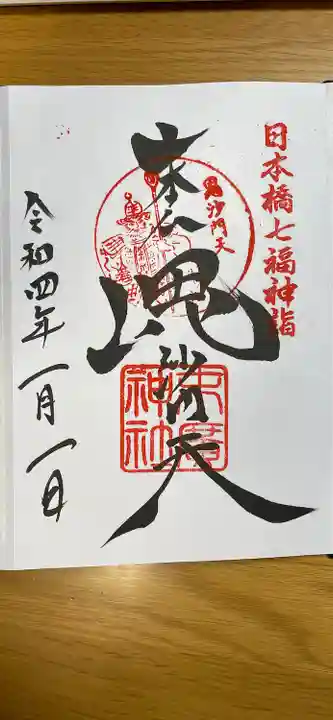 日本橋七福神詣
毘沙門天
奉拝
毘沙門天
神社
令和四年一月一日